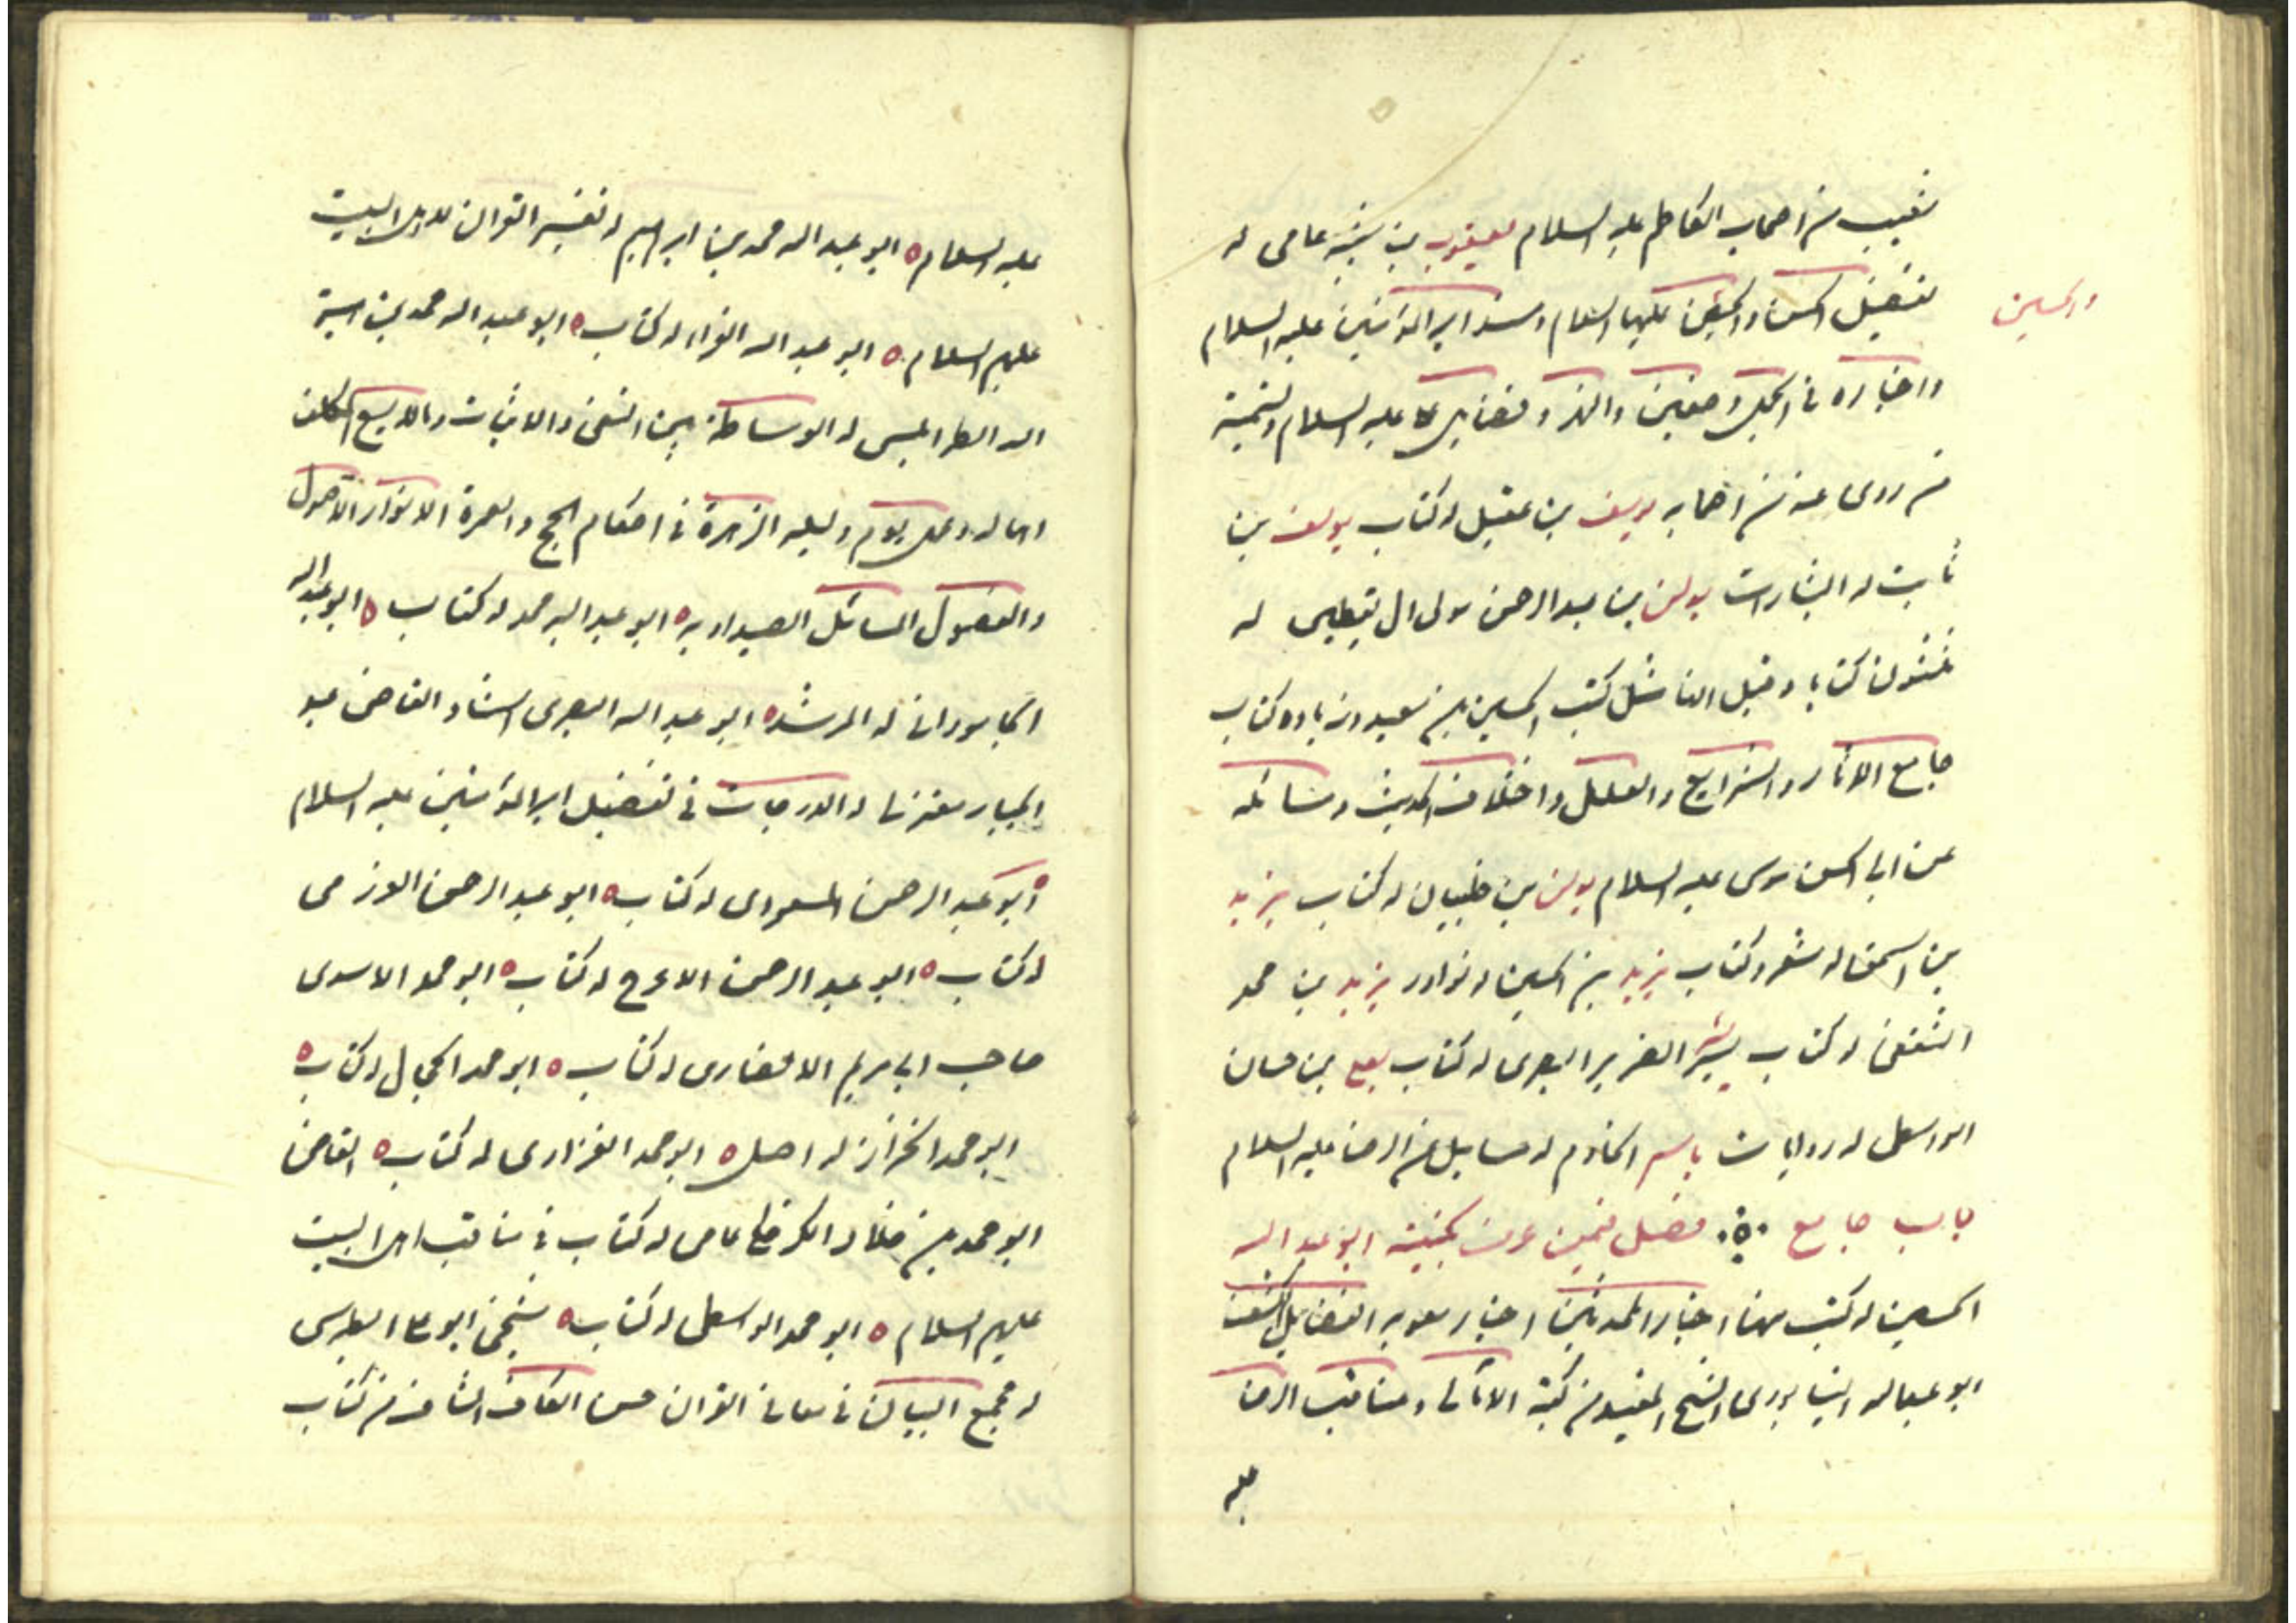 شعيب من اصحاب الكاظم عليه السلام يعقوب بن شيبة عامى له
تفضيل الحسن والحسين عليهما السلام ومسند امير المؤمنين عليه السلام
والحسين
واخباره فى الجمل وصفين والنهر وفضايل على عليه السلام وتسمية
من روى عنه من اصحابه يوسف بن عقيل له كتاب يوسف بن
ثابت له البشارات يونس بن عبد الرحمن مولى ال يقطين له
ثلثون كتابا وقيل انها مثل كتب الحسين بن سعيد وزيادة كتاب
جامع الاثار والشرايع والعلل واختلاف الحديث ومسائله
عن ابى الحسن موسى عليه السلام يونس بن ظبيان له كتاب يزيد
بن اسحق له شعر وكتاب يزيد بن الحسين له نوادر يزيد بن محمد
الثقفى له كتاب الضرير البصرى له كتاب بن حسان
الواسطى له روايات ياسر الخادم له مسايل عن الرضا عليه السلام
باب جامع فصل فيمن عرف بكنيته ابو عبد الله
الحسين له كتب منها اخبار المحدثين اخبار معويه الفضايل الكشف
ابو عبد الله النيسابورى الشيخ المفيد من كتبه الامالى ومناقب الرضا
عليه
عليه السلام ابو عبد الله محمد بن ابراهيم له تفسير القران لاهل البيت
عليهم السلام ابو عبد الله الفراء له كتاب ابو عبد الله محمد بن هبة
الله الطرابلسى له الوساطة بين النفى والاثبات وما لا يسع المكلف
اهماله وعمل يوم وليله الزهرة فى احكام الحج والعمرة الانوار الاصول
والفصول المسائل الصيداويه ابو عبد الله محمد له كتاب ابو عبد الله
الجامورانى له المرشد ابو عبد الله البصرى استاد القاضى عبد
الجبار معتزلى له الدرجات فى تفضيل امير المؤمنين عليه السلام
ابو عبد الرحمن المسعودى له كتاب ابو عبد الرحمن العرزمى
له كتاب ابو عبد الرحمن الاعرج له كتاب ابو محمد الاسدى
صاحب ابى مريم الانصارى له كتاب ابو محمد الحجال له كتاب
ابو محمد الخزاز له اصل ابو محمد الفزارى له كتاب القاضى
ابو محمد بن خلاد الكرخى عامى له كتاب فى مناقب اهل البيت
عليهم السلام ابو محمد الواسطى له كتاب شيخى ابو على الطبرسى
له مجمع البيان فى معانى القران حسن الكاف الشاف من كتاب